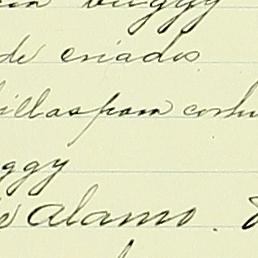 buggy
de criados
illas para
ggy
Alamo.